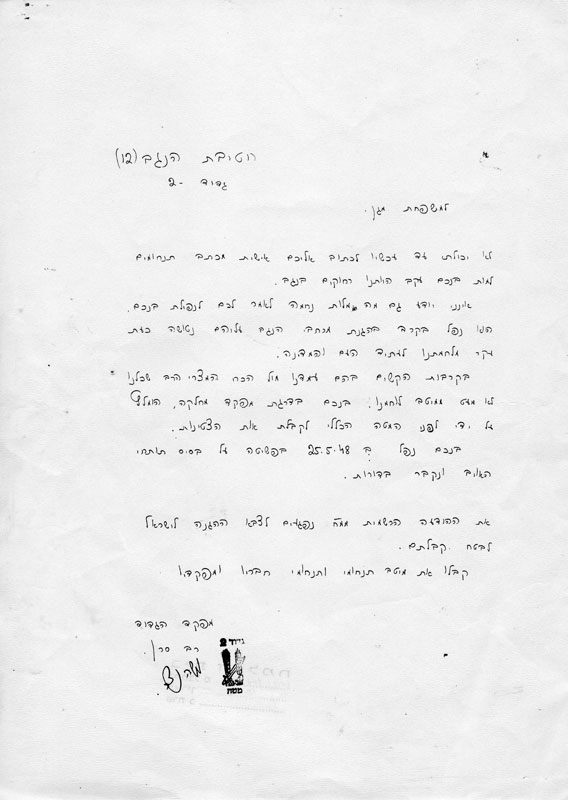 חטיבת הנגב (12)
גדוד - 2
למשפחת מגן.
לא יכולתי עד עכשיו לכתוב אליכם אישית מכתב תנחומים
למות בנכם עקב היותנו רחוקים בנגב.
אינני יודע גם מה מלות נחמה לאמר לכם לנפילת בנכם.
הוא נפל בקרב בהגנת מרחבי הנגב עליהם נטושה כעת
עקר מלחמתנו לעתיד העם והמדינה.
בקרבות הקשים בהם עמדנו מול הכח המצרי הרב שכלנו
לא מעט ממיטב לוחמנו. בנכם בדרגת מפקד מחלקה, הומלץ
על ידי לפני המטה הכללי לקבלת אות הצטיינות.
בנכם נפל ב 25.5.48 בפשיטה על בסיס תותחי
האויב ונקבר בדורות.
את ההודעה הרשמית ממח' נפגעים לצבא ההגנה לישראל
לבטח קבלתם.
קבלו את מיטב תנחומי ותנחומי חבריו ומפקדיו
מפקד הגדוד
רב סרן.
גדוד 2